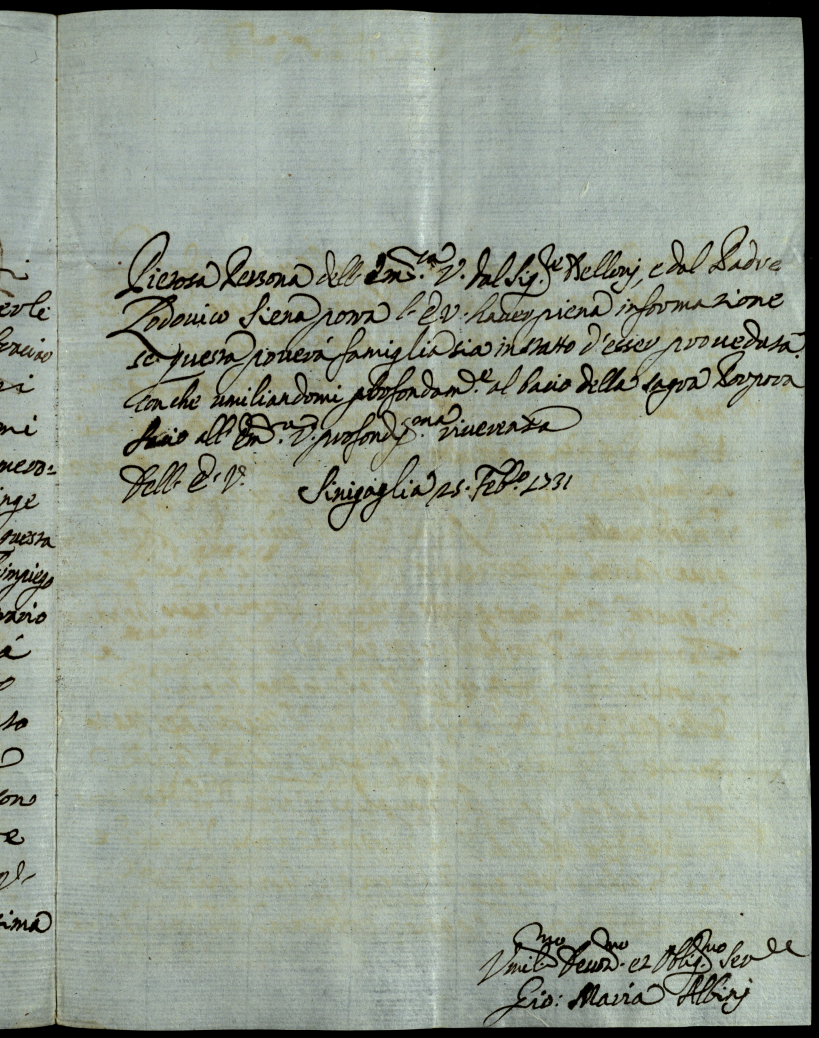 Pietosa Persona dell' Em.za V. dal Sig.re Bellonj, e dal Padre
Lodovico Siena potrà l' E. V. haver piena informazione
se questa povera famiglia sia in stato d'esser proveduta.
Con che umiliandomi profondam.te al bacio della sagra Porpora
facio all' Em.za V. profond.ma riverenza
Dell' E. V. Sinigaglia 25. Feb.o 1731
Umil.mo Devot.mo et Oblig.mo Ser.re
Gio: Maria Albinj
erli
ri
mi
inge
questa
l'impiego
à
to
e
sima